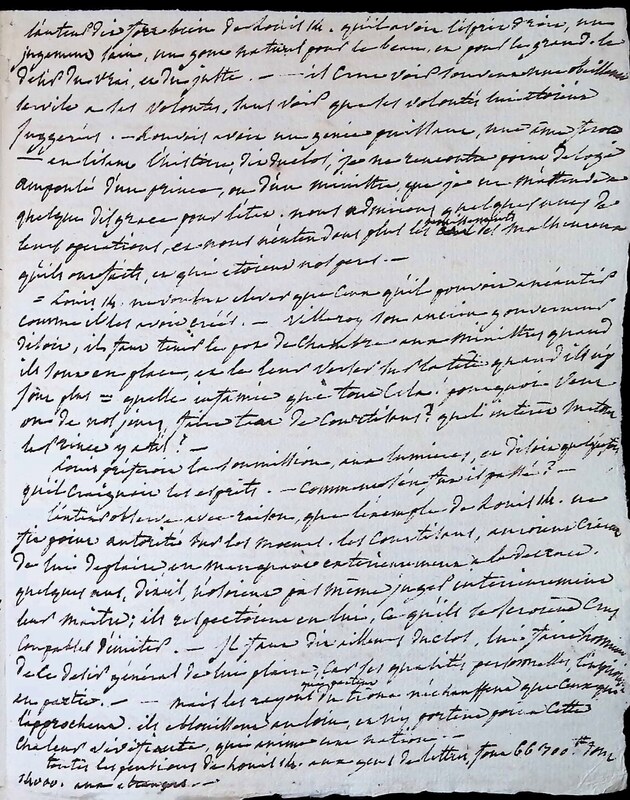 l'auteur dit fort bien de Louis 14. qu'il avoit l'esprit droit, un
jugement sain, un gout naturel pour le beau, et pour le grand. le
desir du vrai, et du juste. — il crut voir souvent une obeissance
servile a ses volontés, sans voir que ses volontés lui étoient
suggerées. — Louvois avoit un genie puissant, une âme feroce
— en lisant l'histoire, dit duclos, je ne rencontre point d'eloge
ampoulé d'un prince, ou d'un ministre, que je ne m'attende a
quelque disgrace pour l'état. nous admirons quelques unes de
leurs operations, et nous n'entendons plus les gemissements des malheureux
qu'ils ont faits, et qui etoient nos peres. —
= Louis 14. ne voulut elever que ceux qu'il pouvoit anéantir
comme il les avoit créés. — Villeroy son ancien gouverneur
disoit, il faut tenir le pot de chambre aux ministres quand
ils sont en place, et le leur verser sur la tête quand ils n'y
sont plus = quelle infamie que tout cela! pourquoi veut
on de nos jours, faire tant de Courtisans? quel intérêt
le Prince y a t'il? —
Louis preferoit la soumission, aux lumieres, et disoit quelquefois
qu'il craignoit les esprits. — Comment s'en fut il passé? —
l'auteur observe avec raison, que l'exemple de Louis 14. ne
fit point autorité sur les moeurs. les Courtisans, auroient craint
de lui deplaire, en manquant exterieurement a la decence.
quelques uns, disoit, n'osoient pas même juger interieurement
leur maître; ils respectoient en lui, ce qu'ils se seroient crus
coupables d'imiter. — Il faut d'ailleurs duclos, lui faire honneur
de ce desir général de lui plaire; car ses qualités personnelles, l'inspiroient
en partie. — mais les rayons du trône n'échauffent que ceux qui
l'approchent. ils eblouissent au loin, et n'y portent point cette
chaleur vivifiante, qui anime une nation. —
toutes les pensions de Louis 14. aux gens de lettres, font 66 300 tt dont
14000. aux etrangers. —